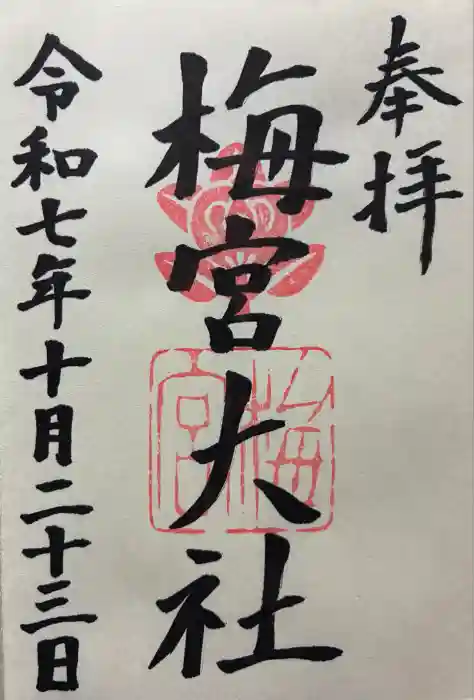 奉拝
梅宮大社
梅宮
令和七年十月二十三日